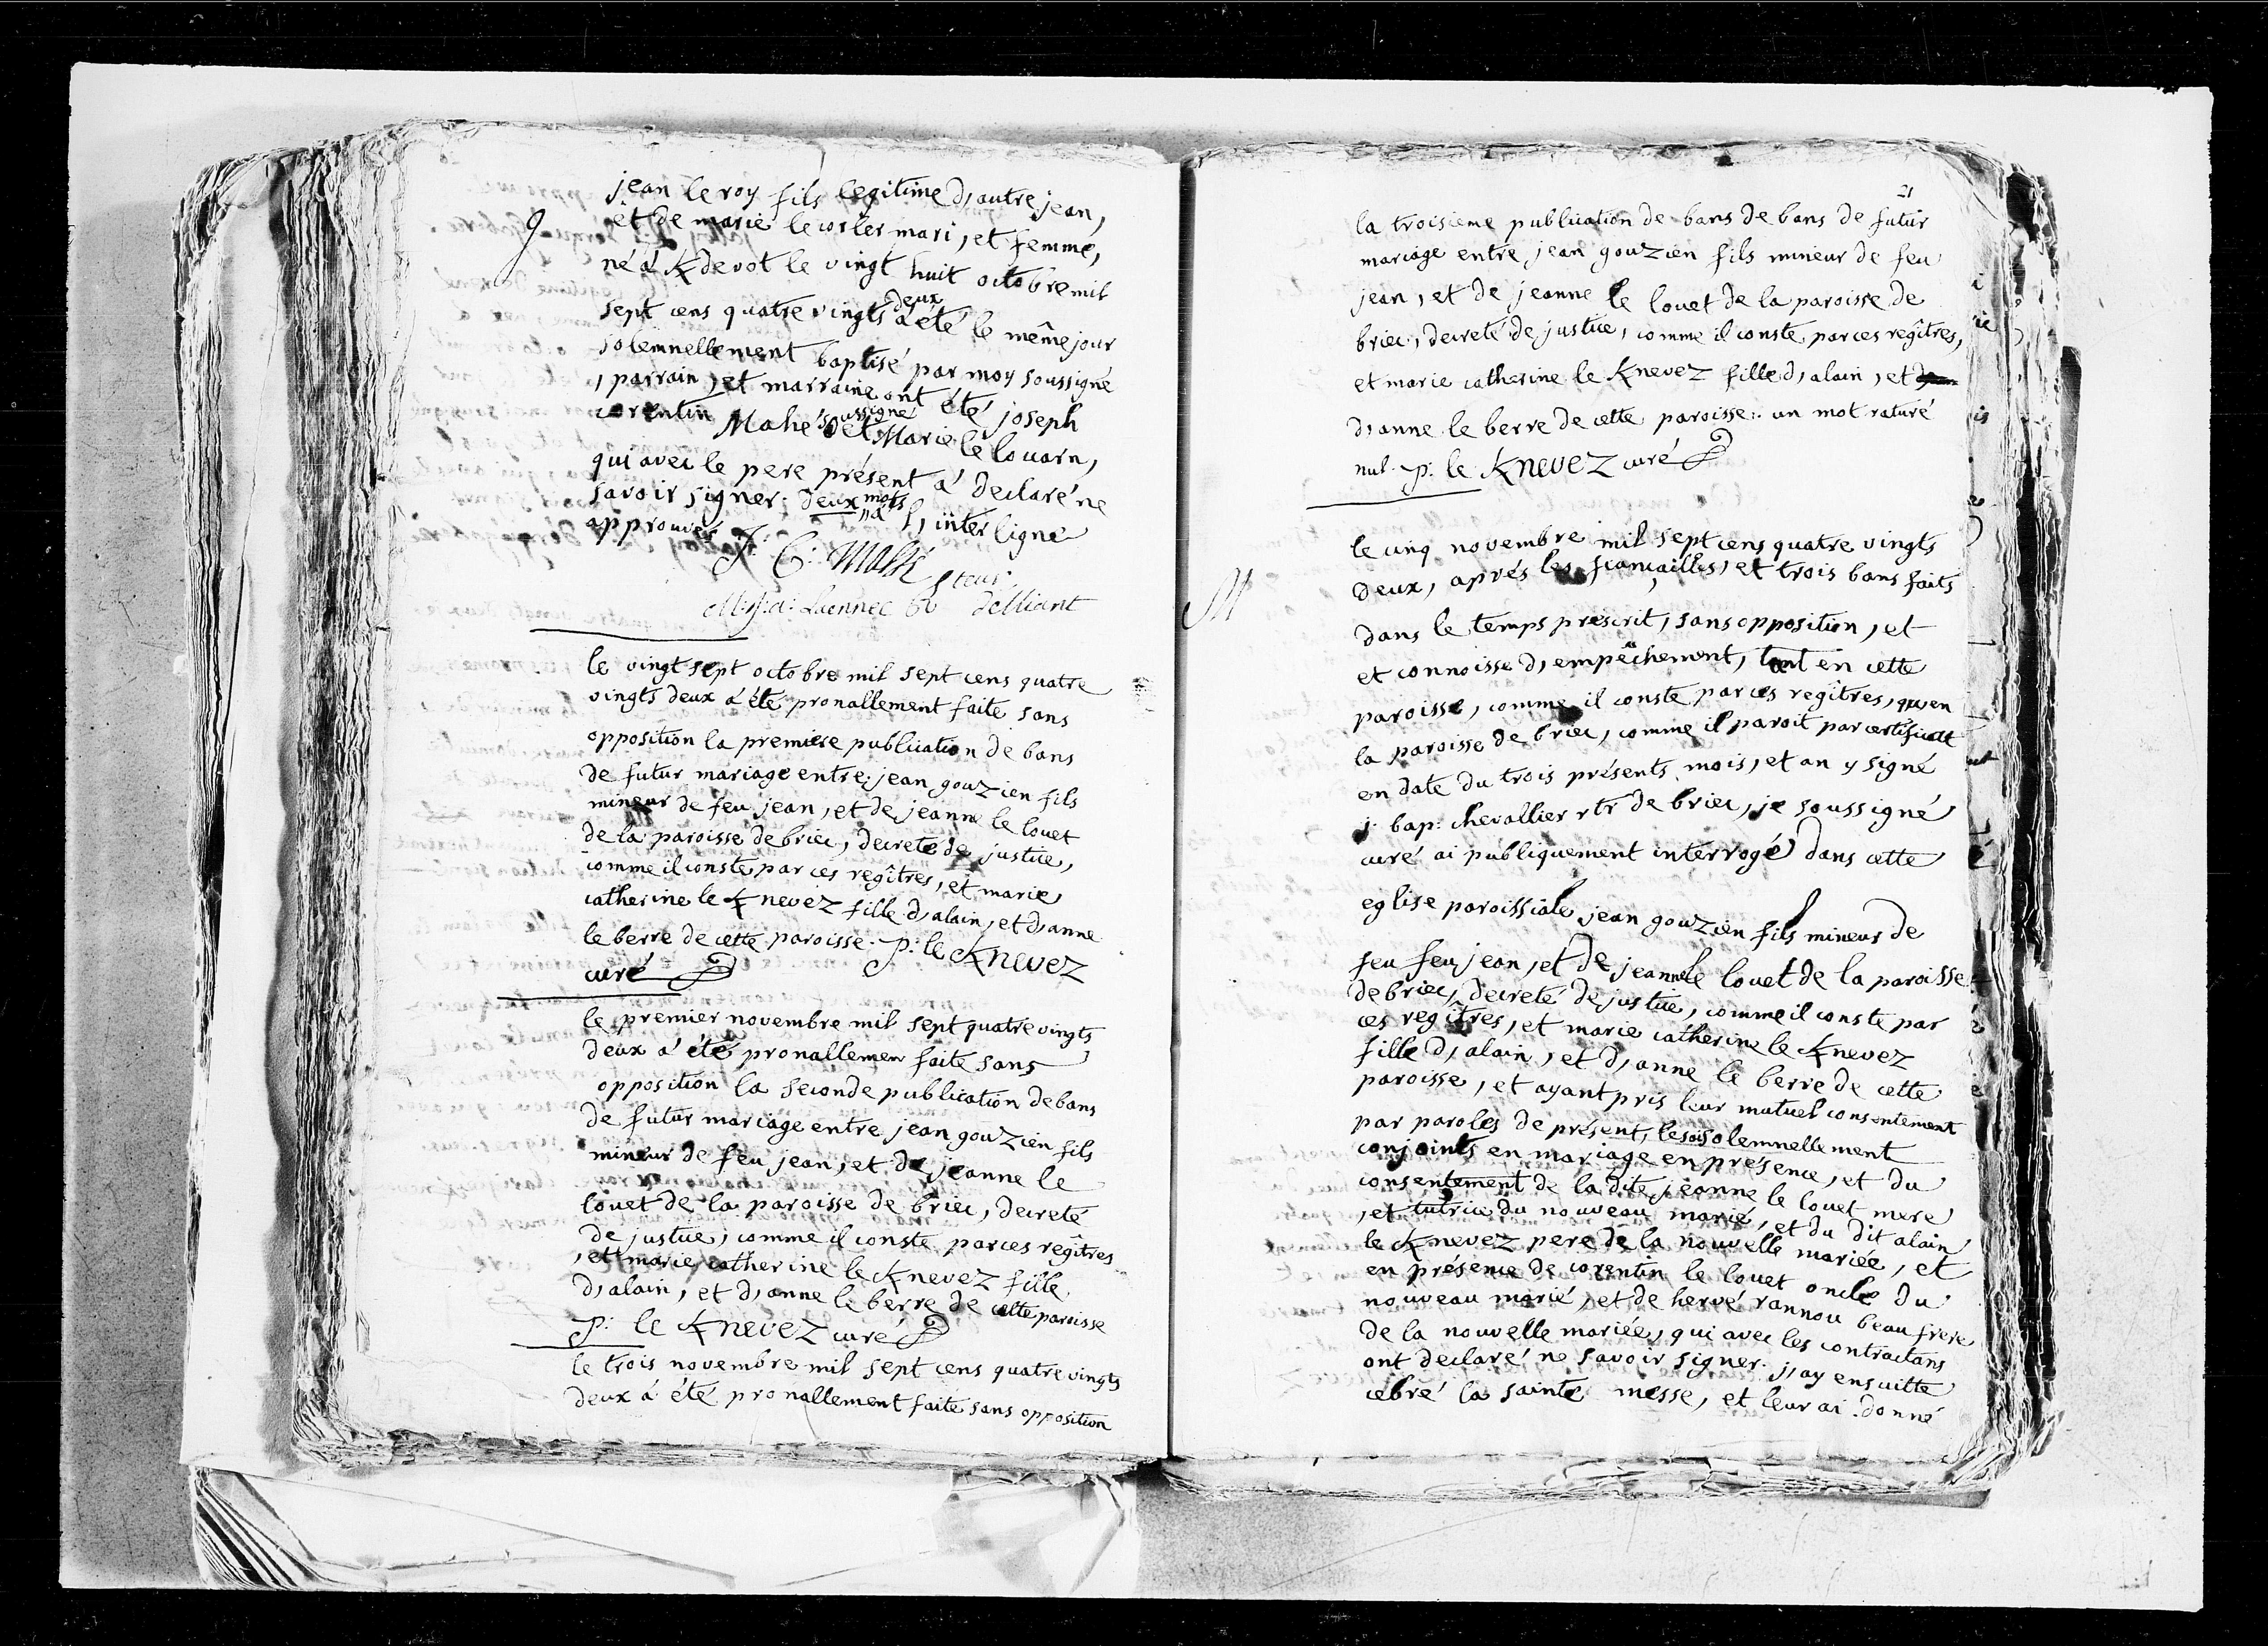 jean le roy fils legitime d, autre jean,
9 et de marie le corler mari, et femme,
né á Kdevot le vingt huit octobre mil
sept cens quatre vingts deux á été le même jour
solemnellement baptisé par moy soussigné
, parrain, et marraine ont été joseph
corentin Mahé soussigné et Marie le louarn,
qui avec le pere présent á declaré ne
savoir signer. deux mots á l, interligne
approuvés J: C: Mahé
M: j: a: Laennec Rteur d'elliant
le vingt sept octobre mil sept cens quatre
vingts deux á été pronallement faite sans
opposition la premiere publication de bans
de futur mariage entre jean gouzien fils
mineur de feu jean, et de jeanne le louet
de la paroisse de briec, decreté de justice,
comme il conste par ces regîtres, et marie
catherine le Knevez fille d, alain, et d, anne
le berre de cette paroisse. p: le Knevez
curé
le premier novembre mil sept quatre vingts
deux á été pronallemen faite sans
opposition la seconde publication de bans
de futur mariage entre jean gouzien fils
mineur de feu jean, et de jeanne le
louet de la paroisse de briec, decreté
de justice, comme il conste par ces regîtres
, et marie catherine le Knevez fille
d, alain, et d, anne le berre de cette paroisse
p: le Knevez curé
le trois novembre mil sept cens quatre vingts
deux á été pronallement faite sans opposition
21
la troisieme publication de bans de bans de futur
mariage entre jean gouzien fils mineur de feu
jean, et de jeanne le louet de la paroisse de
briec, decreté de justice, comme il conste par ces regîtres,
et marie catherine le Knevez fille d, alain, et
d, anne le berre de cette paroisse: un mot raturé
nul. p: le Knevez curé
le cinq novembre mil sept cens quatre vingts
deux, aprés les fiançailles, et trois bans faits
M dans le temps prescrit, sans opposition, et
et connoisse d, empêchement, tant en cette
paroisse, comme il conste par ces regîtres, qu,en
la paroisse de briec, comme il paroit par certificatt
en date du trois présents mois, et an y signé
j. bap: chevallier rtr de briec, je soussigné
curé ai publiquement interrogé dans cette
eglise paroissiale jean gouzien fils mineur de
feu feu jean, et de jeanne le louet de la paroisse
de briec, decreté de justice, comme il conste par
ces regîtres, et marie catherine le Knevez
fille d, alain, et d, anne le berre de cette
paroisse, et ayant pris leur mutuel consentement
par paroles de présent, les ai solemnellement
conjoints en mariage en présence, et du
consentement de la dite jeanne le louet mere
, et tutrice du nouveau marié, et du dit alain
le Knevez pere de la nouvelle mariée, et
en présence de corentin le louet oncle du
nouveau marié, et de hervé rannou beau frere
de la nouvelle mariée, qui avec les contractans
ont declaré ne savoir signer. j, ay ensuitte
cebré la sainte messe, et leur ai donné